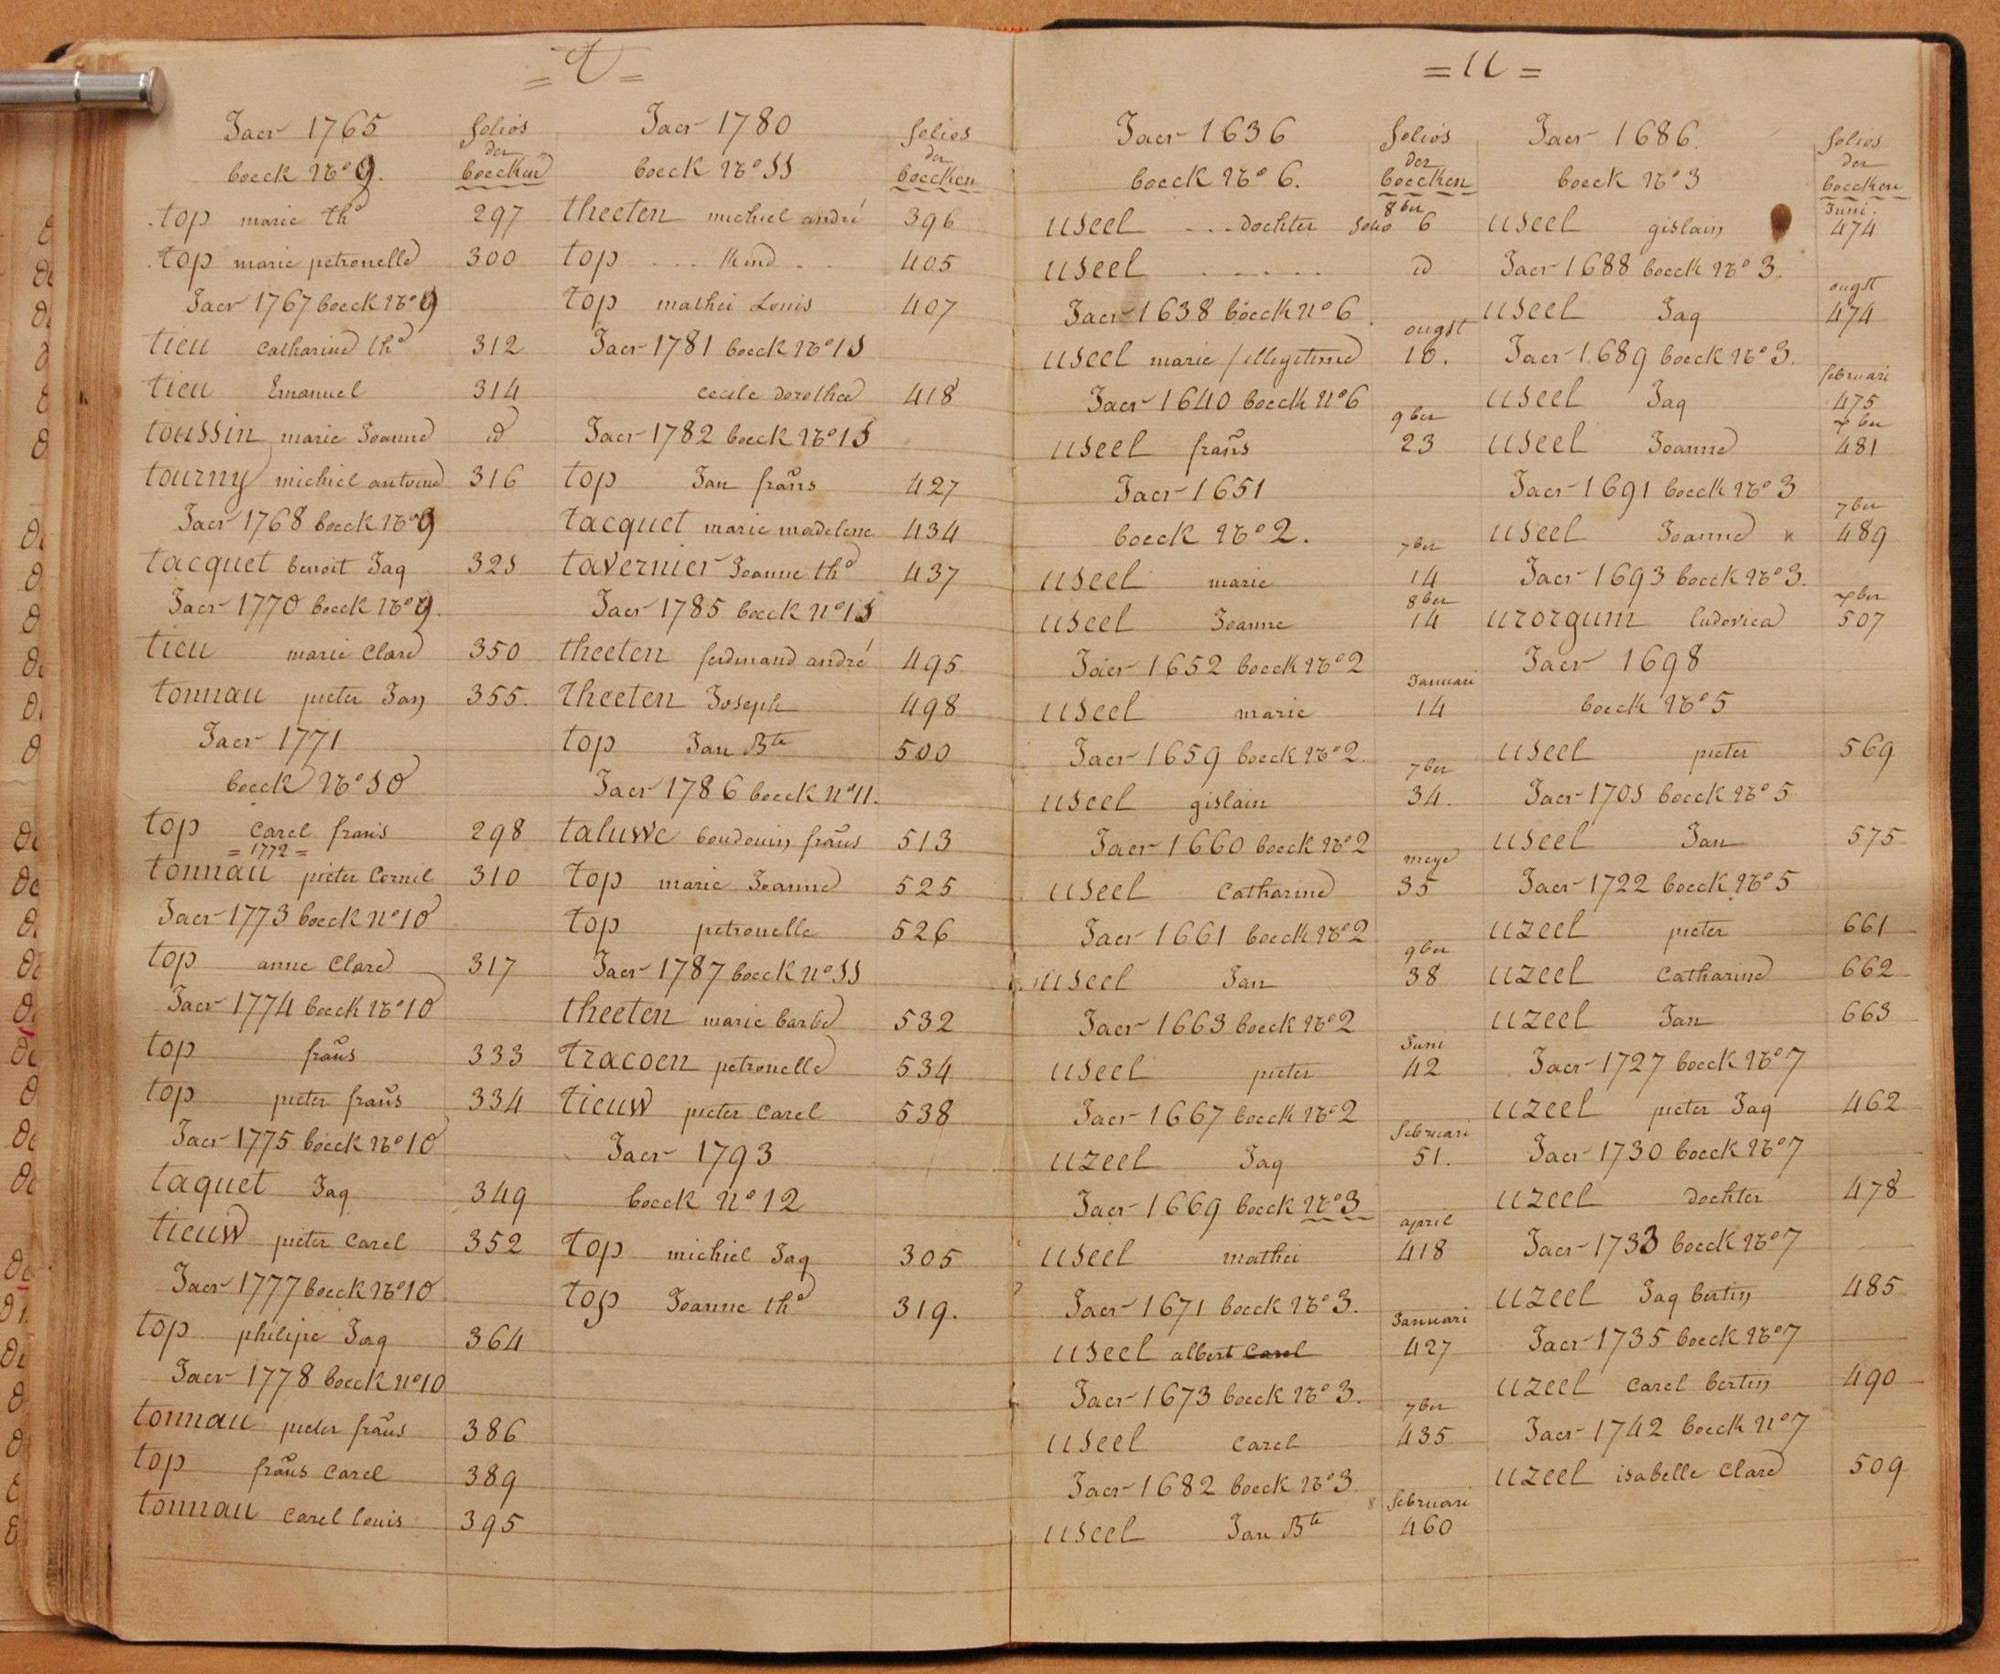 = T =
Jaer 1765
folios
der
boecken
boeck N° 9.
top marie th^e 297
top marie petronelle 300
Jaer 1767 boeck N° 9
tieu catharine th^e 312
tieu Emanuel 314
toussin marie Joanne id
tourny michiel antoine 316
Jaer 1768 boeck N° 9
tacquet benoit Jaq 325
Jaer 1770 boeck N° 9.
tieu marie Clare 350
tonnau pieter Jan 355.
Jaer 1771
boeck N° 10
top Carel frans 298
= 1772 =
tonnau pieter Cornil 310
Jaer 1773 boeck n° 10
top anne Clare 317
Jaer 1774 boeck N° 10
top frans 333
top pieter frans 334
Jaer 1775 boeck N° 10
taquet Jaq 349
tieuw pieter Carel 352
Jaer 1777 boeck N° 10
top philipe Jaq 364
Jaer 1778 boeck n° 10
tonnau pieter frans 386
top frans Carel 389
tonnau Carel Louis 395
Jaer 1780
folios
der
boecken
boeck N° 11
theeten michiel andré 396
top ... Kind .. 405
top mathei Louis 407
Jaer 1781 boeck N° 11
cecile dorothee 418
Jaer 1782 boeck N° 11
top Jan frans 427
tacquet marie madelene 434
tavernier Joanne th^e 437
Jaer 1785 boeck n° 11
theeten ferdinand andré 495
theeten Joseph 498
top Jan B^te 500
Jaer 1786 boeck n° 11.
taluwe boudouin frans 513
top marie Joanne 525
top petronelle 526
Jaer 1787 boeck n° 11
theeten marie barbe 532
tracoen petronelle 534
tieuw pieter Carel 538
Jaer 1793
boeck n° 12
top michiel Jaq 305
top Joanne th^e 319.
= U =
Jaer 1636
folios
der
boecken
boeck N° 6.
8ber
useel ... dochter folio 6
useel ...... id
Jaer 1638 boeck n° 6
ougst
useel marie / illegetime 10.
Jaer 1640 boeck n° 6
9ber
useel frans 23
Jaer 1651
boeck N° 2.
7ber
useel marie 14
8ber
useel Joanne 14
Jaer 1652 boeck N° 2
Januari
useel marie 14
Jaer 1659 boeck N° 2
7ber
useel gislain 34.
Jaer 1660 boeck N° 2
meye
useel Catharine 35
Jaer 1661 boeck N° 2
9ber
useel Jan 38
Jaer 1663 boeck N° 2
Juni
useel pieter 42
Jaer 1667 boeck N° 2
februari
uzeel Jaq 51.
Jaer 1669 boeck N° 3
april
useel mathei 418
Jaer 1671 boeck N° 3.
Januari
useel albert Carel 427
Jaer 1673 boeck N° 3.
7ber
useel Carel 435
Jaer 1682 boeck N° 3
8 februari
useel Jan B^te 460
Jaer 1686.
folios
der
boecken
boeck N° 3
Juni.
useel gislain 474
Jaer 1688 boeck N° 3.
ougst
useel Jaq 474
Jaer 1689 boeck N° 3.
februari
useel Jaq 475
xber
useel Joanne 481
Jaer 1691 boeck N° 3
7ber
useel Joanne x 489
Jaer 1693 boeck N° 3.
xber
urorgum ludovica 507
Jaer 1698
boeck N° 5
useel pieter 569
Jaer 1701 boeck N° 5
useel Jan 575
Jaer 1722 boeck N° 5
uzeel pieter 661
uzeel Catharine 662
uzeel Jan 663
Jaer 1727 boeck N° 7
uzeel pieter Jaq 462
Jaer 1730 boeck N° 7
uzeel dochter 478
Jaer 1733 boeck N° 7
uzeel Jaq bertin 485
Jaer 1735 boeck N° 7
uzeel Carel bertin 490
Jaer 1742 boeck n° 7
uzeel isabelle Clare 509